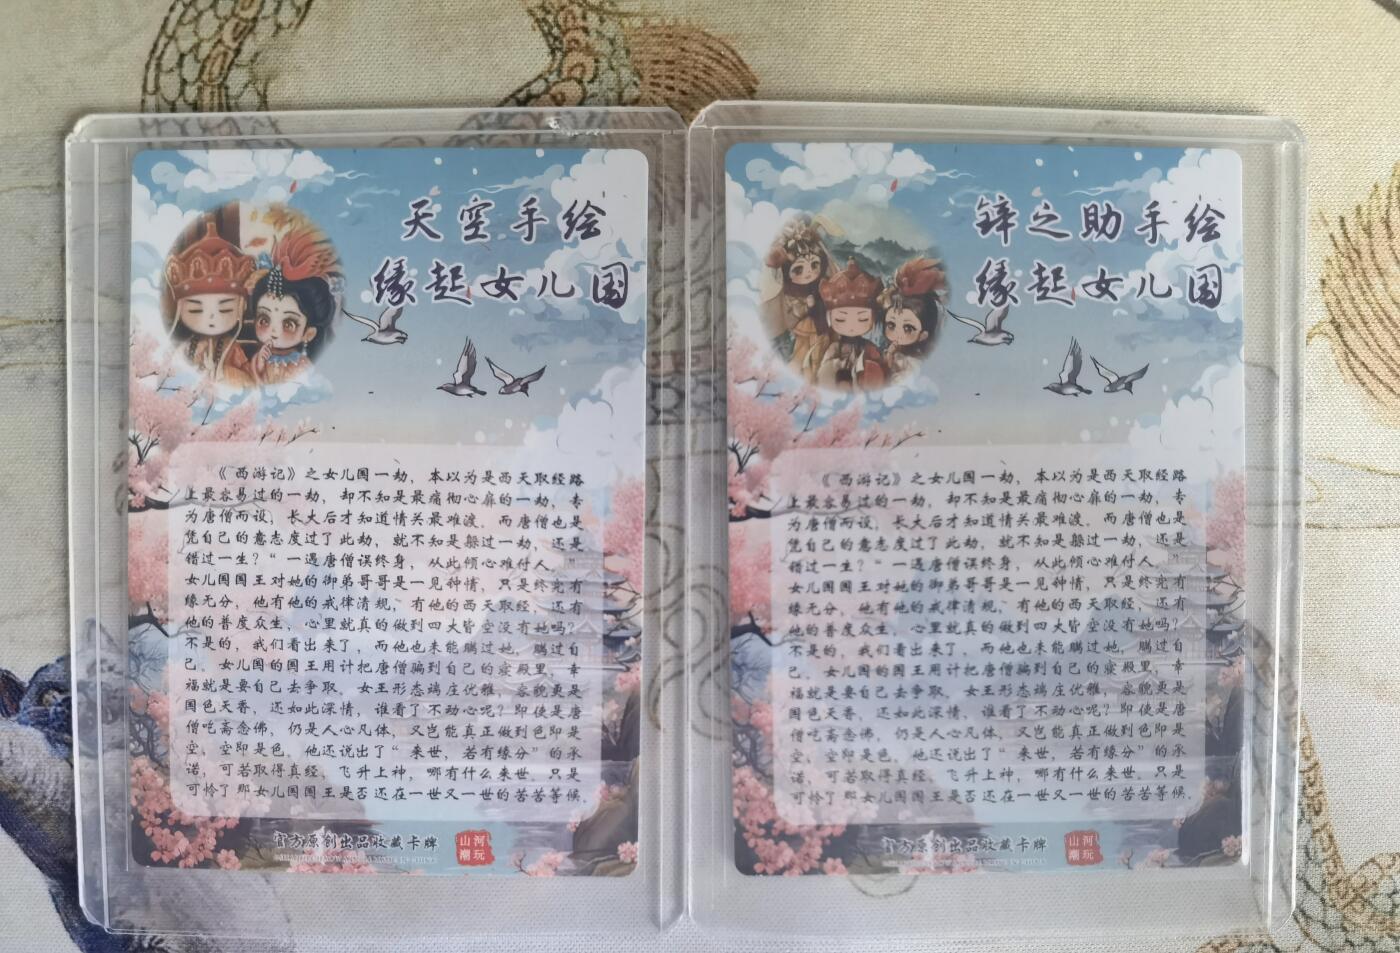 天空手绘
缘起女儿国
《西游记》之女儿国一劫,本以为是西天取经路
上最容易过的一劫,却不知是最痛彻心扉的一劫,专
为唐僧而设,长大后才知道情关最难渡。而唐僧也是
凭自己的意志度过了此劫,就不知是躲过一劫,还是
错过一生?“一遇唐僧误终身,从此倾心难付人。”
女儿国国王对她的御弟哥哥是一见钟情,只是终究有
缘无分,他有他的戒律清规,有他的西天取经,还有
他的普度众生,心里就真的做到四大皆空没有她吗?
不是的,我们看出来了,而他也未能瞒过她,瞒过自
己。女儿国的国王用计把唐僧骗到自己的寝殿里,幸
福就是要自己去争取。女王形态端庄优雅,容貌更是
国色天香,还如此深情,谁看了不动心呢?即使是唐
僧吃斋念佛,仍是人心凡体,又岂能真正做到色即是
空,空即是色。他还说出了“来世,若有缘分”的承
诺,可若取得真经,飞升上神,哪有什么来世。只是
可怜了那女儿国国王是否还在一世又一世的苦苦等候。
官方原创出品收藏卡牌
山河
潮玩
锌之助手绘
缘起女儿国
《西游记》之女儿国一劫,本以为是西天取经路
上最容易过的一劫,却不知是最痛彻心扉的一劫,专
为唐僧而设,长大后才知道情关最难渡。而唐僧也是
凭自己的意志度过了此劫,就不知是躲过一劫,还是
错过一生?“一遇唐僧误终身,从此倾心难付人。”
女儿国国王对她的御弟哥哥是一见钟情,只是终究有
缘无分,他有他的戒律清规,有他的西天取经,还有
他的普度众生,心里就真的做到四大皆空没有她吗?
不是的,我们看出来了,而他也未能瞒过她,瞒过自
己。女儿国的国王用计把唐僧骗到自己的寝殿里,幸
福就是要自己去争取。女王形态端庄优雅,容貌更是
国色天香,还如此深情,谁看了不动心呢?即使是唐
僧吃斋念佛,仍是人心凡体,又岂能真正做到色即是
空,空即是色。他还说出了“来世,若有缘分”的承
诺,可若取得真经,飞升上神,哪有什么来世。只是
可怜了那女儿国国王是否还在一世又一世的苦苦等候。
官方原创出品收藏卡牌
山河
潮玩